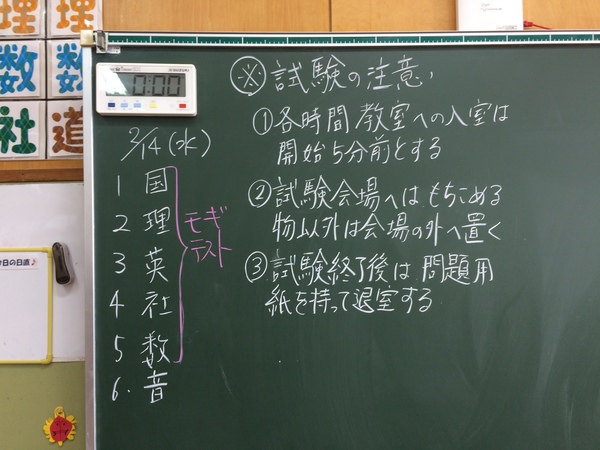 理 理
数 数
社 道
0:00
※ 試験の注意
① 各時間 教室への入室は
開始5分前とする
② 試験会場へはもちこめる
物以外は会場の外へ置く
③ 試験終了後は 問題用
紙を持って退室する
2/14(水)
1 国
2 理
3 英
4 社
5 数
6. 音
モギ
テスト
今日の日直♪